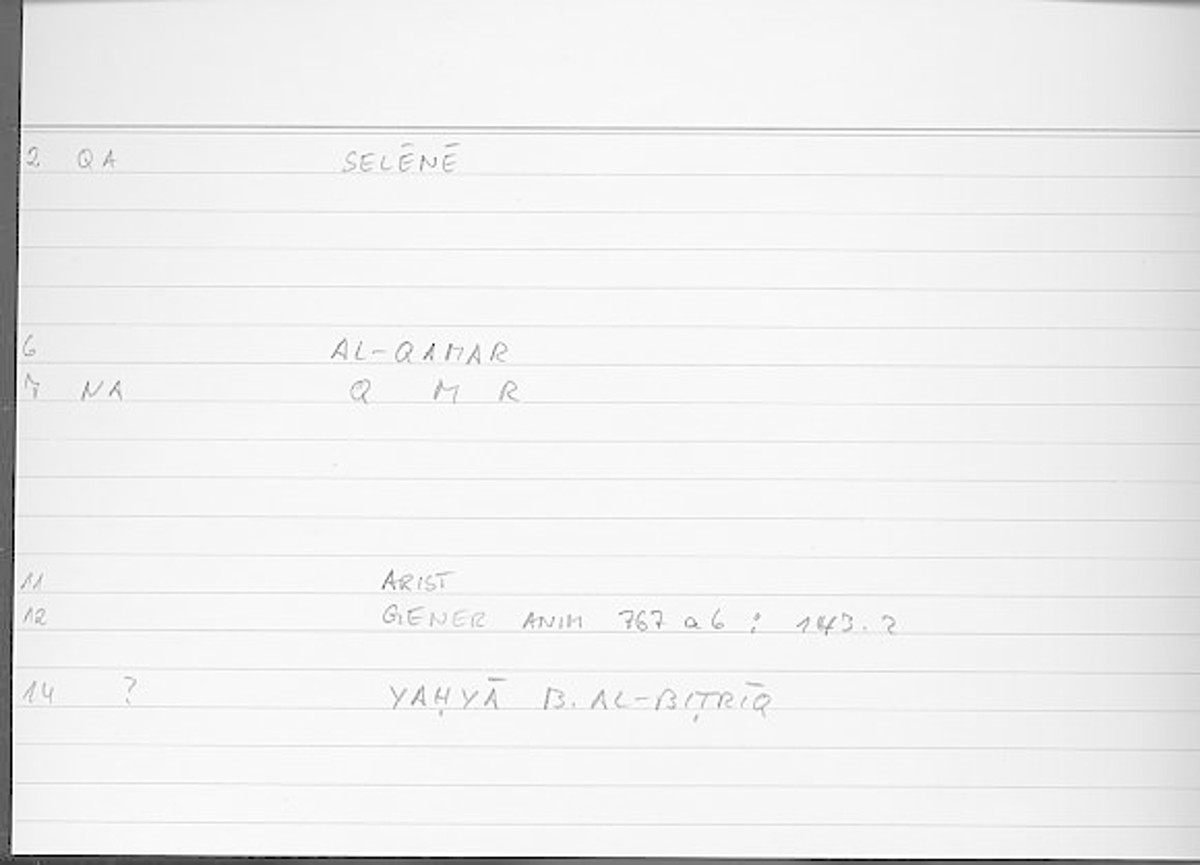 2 QA SELĒNĒ
6 AL-QAMAR
7 NA Q M R
11 ARIST
12 GENER ANIM 767 a 6 : 143.2
14 ? YAḤYĀ B. AL-BIṬRĪQ